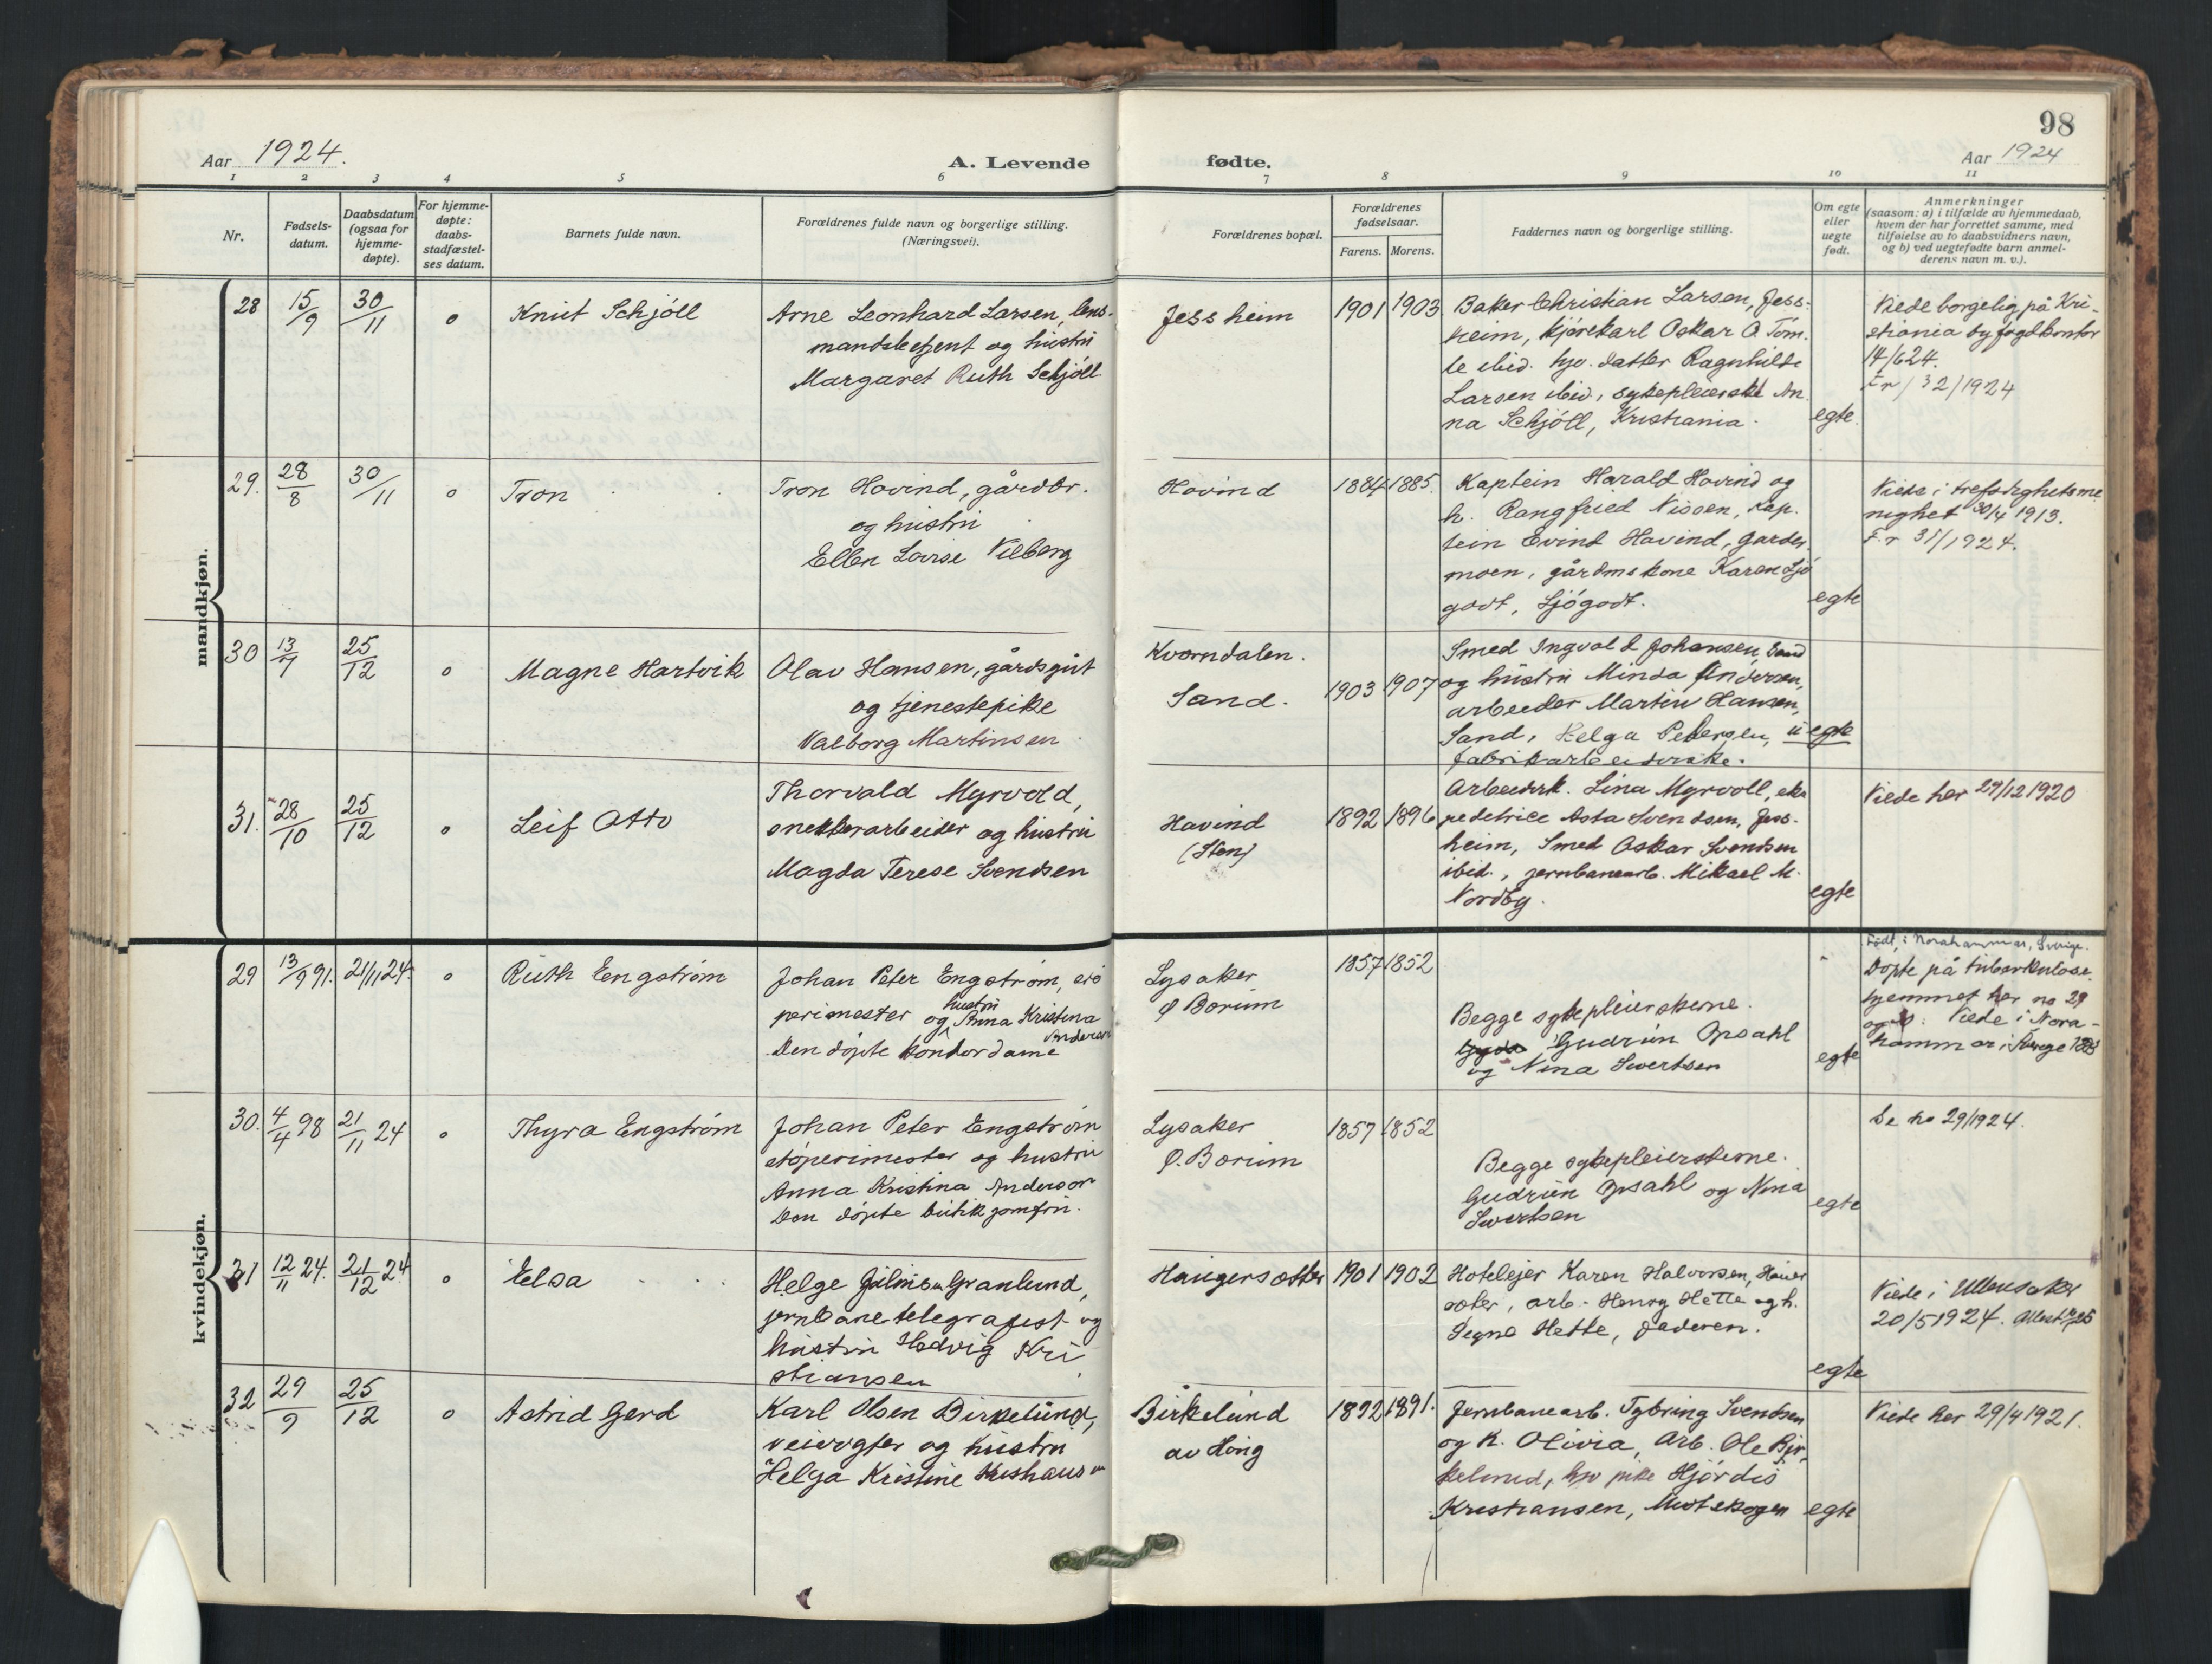 98
Aar 1924.
A. Levende
fødte.
Aar 1924
1 2 3 4 5 6 7 8 9 10 11
Nr.
Fødsels-
datum.
Daabsdatum
(ogsaa for
hjemme-
døpte).
For hjemme-
døpte:
daabs-
stadfæstel-
ses datum.
Barnets fulde navn.
Forældrenes fulde navn og borgerlige stilling.
(Næringsvei).
Forældrenes bopæl.
Forældrenes
fødselsaar.
Farens. Morens.
Faddernes navn og borgerlige stilling.
Om egte
eller
uegte
født.
Anmerkninger
(saasom: a) i tilfælde av hjemmedaab,
hvem der har forrettet samme, med
tilføielse av to daabsvidners navn,
og b) ved uegtefødte barn anmel-
derens navn m. v.).
mandkjøn.
28
15/9
30/11
o
Knut Schjöll
Arne Leonhard Larsen, lens-
mandsbetjent og hustru
Margaret Ruth Schjöll
Jessheim
1901 1903
Baker Christian Larsen, Jess-
heim, kjörekarl Oskar O. Töm-
te ibid. hjv. datter Ragnhild
Larsen ibid., sykepleierske An-
na Schjöll, Kristiania.
egte.
Viede borgelig på Kri-
stiania byfogdkontor
14/6 24.
Fr / 32/1924
29.
28/8
30/11
o
Tron
Tron Hovind, gårdbr.
og hustru
Ellen Lovise Vilberg
Hovind
1884 1885.
Kaptein Harald Hovind og
h. Rangfried Nissen, kap-
tein Evind Hovind, Garder-
moen, gårdmskone Karen Ljö
godt, Ljögodt.
egte
Viede i trefoldighetsme
nighet 30/4 1913.
F.r 31/1924.
30
13/7
25/12
o
Magne Hartvik
Olav Hansen, gårdsgut
og tjenestepike
Valborg Martinsen
Kverndalen.
Sand.
1903 1907
Smed Ingvald Johansen, Sand
og hustru Minda Andersen,
arbeider Martin Hansen,
Sand, Helga Pedersen,
fabrikarbeiderske.
uegte
31.
28/10
25/12
o
Leif Otto
Thorvald Myrvold,
snekkerarbeider og hustru
Magda Terese Svendsen
Hovind
(Sten)
1892 1896
Arbeidersk. Lina Myrvoll, eks
peditrice Asta Svendsen, Jess-
heim, Smed Oskar Svendsen
ibid., jernbanearb. Mikael M.
Nordby.
egte
Viede her 29/12 1920
kvindekjøn.
29
13/9 91.
21/11 24.
o
Ruth Engström
Johan Peter Engström, stö
perimester og hustru Anna Kristina
Anderson
Den döpte kontordame
Lysaker
Ö Borum
1857 1852
Begge sykepleierskerne.
Gudrun Opsahl
og Nina Sivertsen
egte
Født i Norahammar, Sverige.
Döpte på tuberkulose
hjemmet her no 29
Viede i Nora-
hammar i Sverige
30.
4/4 98
21/11 24
o
Thyra Engström
Johan Peter Engström
stöperimester og hustru
Anna Kristina Anderson
Den döpte butikjomfru.
Lysaker
Ö. Borum
1857 1852
Begge sykepleierskerne.
Gudrun Opsahl og Nina
Sivertsen
egte
Se no 29/1924.
31
12/11 24.
21/12 24
o
Elsa
Helge Granlund,
jernbanetelegrafist og
hustru Hedvig Kri
stiansen
Haugersæter
1901 1902
Hotelejer Karen Halvorsen, Hauer
sæter, arb. Henry Hette og h.
Signe Hette, faderen.
egte
Viede i Ullensaker
20/5 1924.
32
29/9
25/12
o
Astrid Gerd
Karl Olsen Birkelund,
veivogter og hustru
Helga Kristine
Birkelund
av Hong
1892 1891.
Jernbanearb. Tybring Svendsen
og h. Olivia, Arb. Ole Bir-
kelund, hjv pike Hjördis
Kristiansen, Mostskogen
egte
Viede her 29/4 1921.